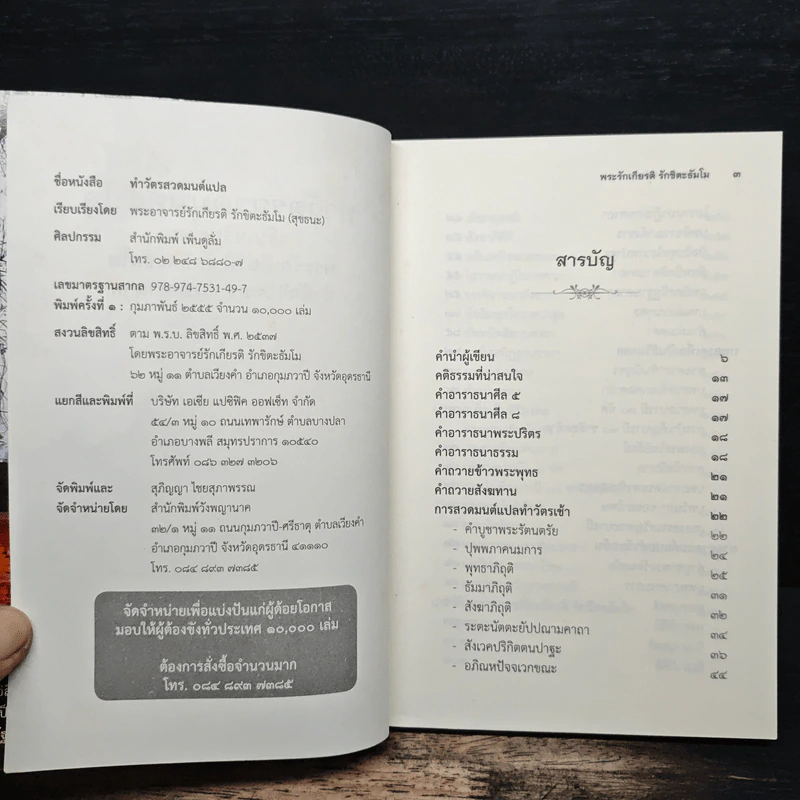 ชื่อหนังสือ ทำวัตรสวดมนต์แปล
เรียบเรียงโดย พระอาจารย์รักเกียรติ รักขิตะธัมโม (สุขธนะ)
ศิลปกรรม สำนักพิมพ์ เพ็นดูลั่ม
โทร. ๐๒ ๒๔๘ ๖๘๘๐-๗
เลขมาตรฐานสากล 978-974-7531-49-7
พิมพ์ครั้งที่ ๑ : กุมภาพันธ์ ๒๕๕๕ จำนวน ๑๐,๐๐๐ เล่ม
สงวนลิขสิทธิ์ ตาม พ.ร.บ. ลิขสิทธิ์ พ.ศ. ๒๕๓๗
โดยพระอาจารย์รักเกียรติ รักขิตะธัมโม
๖๒ หมู่ ๑๑ ตำบลเวียงคำ อำเภอกุมภวาปี จังหวัดอุดรธานี
แยกสีและพิมพ์ที่ บริษัท เอเซีย แปซิฟิค ออฟเซ็ท จำกัด
๕๔/๓ หมู่ ๑๐ ถนนเทพารักษ์ ตำบลบางปลา
อำเภอบางพลี สมุทรปราการ ๑๐๕๔๐
โทรศัพท์ ๐๘๖ ๓๒๗ ๓๒๐๖
จัดพิมพ์และ สุภิญญา ไชยสุภาพรรณ
จัดจำหน่ายโดย สำนักพิมพ์วังพญานาค
๓๒/๑ หมู่ ๑๑ ถนนกุมภวาปี-ศรีธาตุ ตำบลเวียงคำ
อำเภอกุมภวาปี จังหวัดอุดรธานี ๔๑๑๑๐
โทร. ๐๘๔ ๘๙๓ ๗๓๘๕
จัดจำหน่ายเพื่อแบ่งปันแก่ผู้ด้อยโอกาส
มอบให้ผู้ต้องขังทั่วประเทศ ๑๐,๐๐๐ เล่ม
ต้องการสั่งซื้อจำนวนมาก
โทร. ๐๘๔ ๘๙๓ ๗๓๘๕
พระรักเกียรติ รักขิตะธัมโม ๓
สารบัญ
คำนำผู้เขียน ๖
คติธรรมที่น่าสนใจ ๑๓
คำอาราธนาศีล ๕ ๑๗
คำอาราธนาศีล ๘ ๑๗
คำอาราธนาพระปริตร ๑๘
คำอาราธนาธรรม ๑๘
คำถวายข้าวพระพุทธ ๒๑
คำถวายสังฆทาน ๒๑
การสวดมนต์แปลทำวัตรเช้า ๒๒
- คำบูชาพระรัตนตรัย ๒๒
- ปุพพภาคนมการ ๒๔
- พุทธาภิถุติ ๒๕
- ธัมมาภิถุติ ๓๑
- สังฆาภิถุติ ๓๒
- ระตะนัตตะยัปปณามคาถา ๓๔
- สังเวคปริกิตตนปาฐะ ๓๖
- อภิณหปัจจเวกขณะ ๔๔